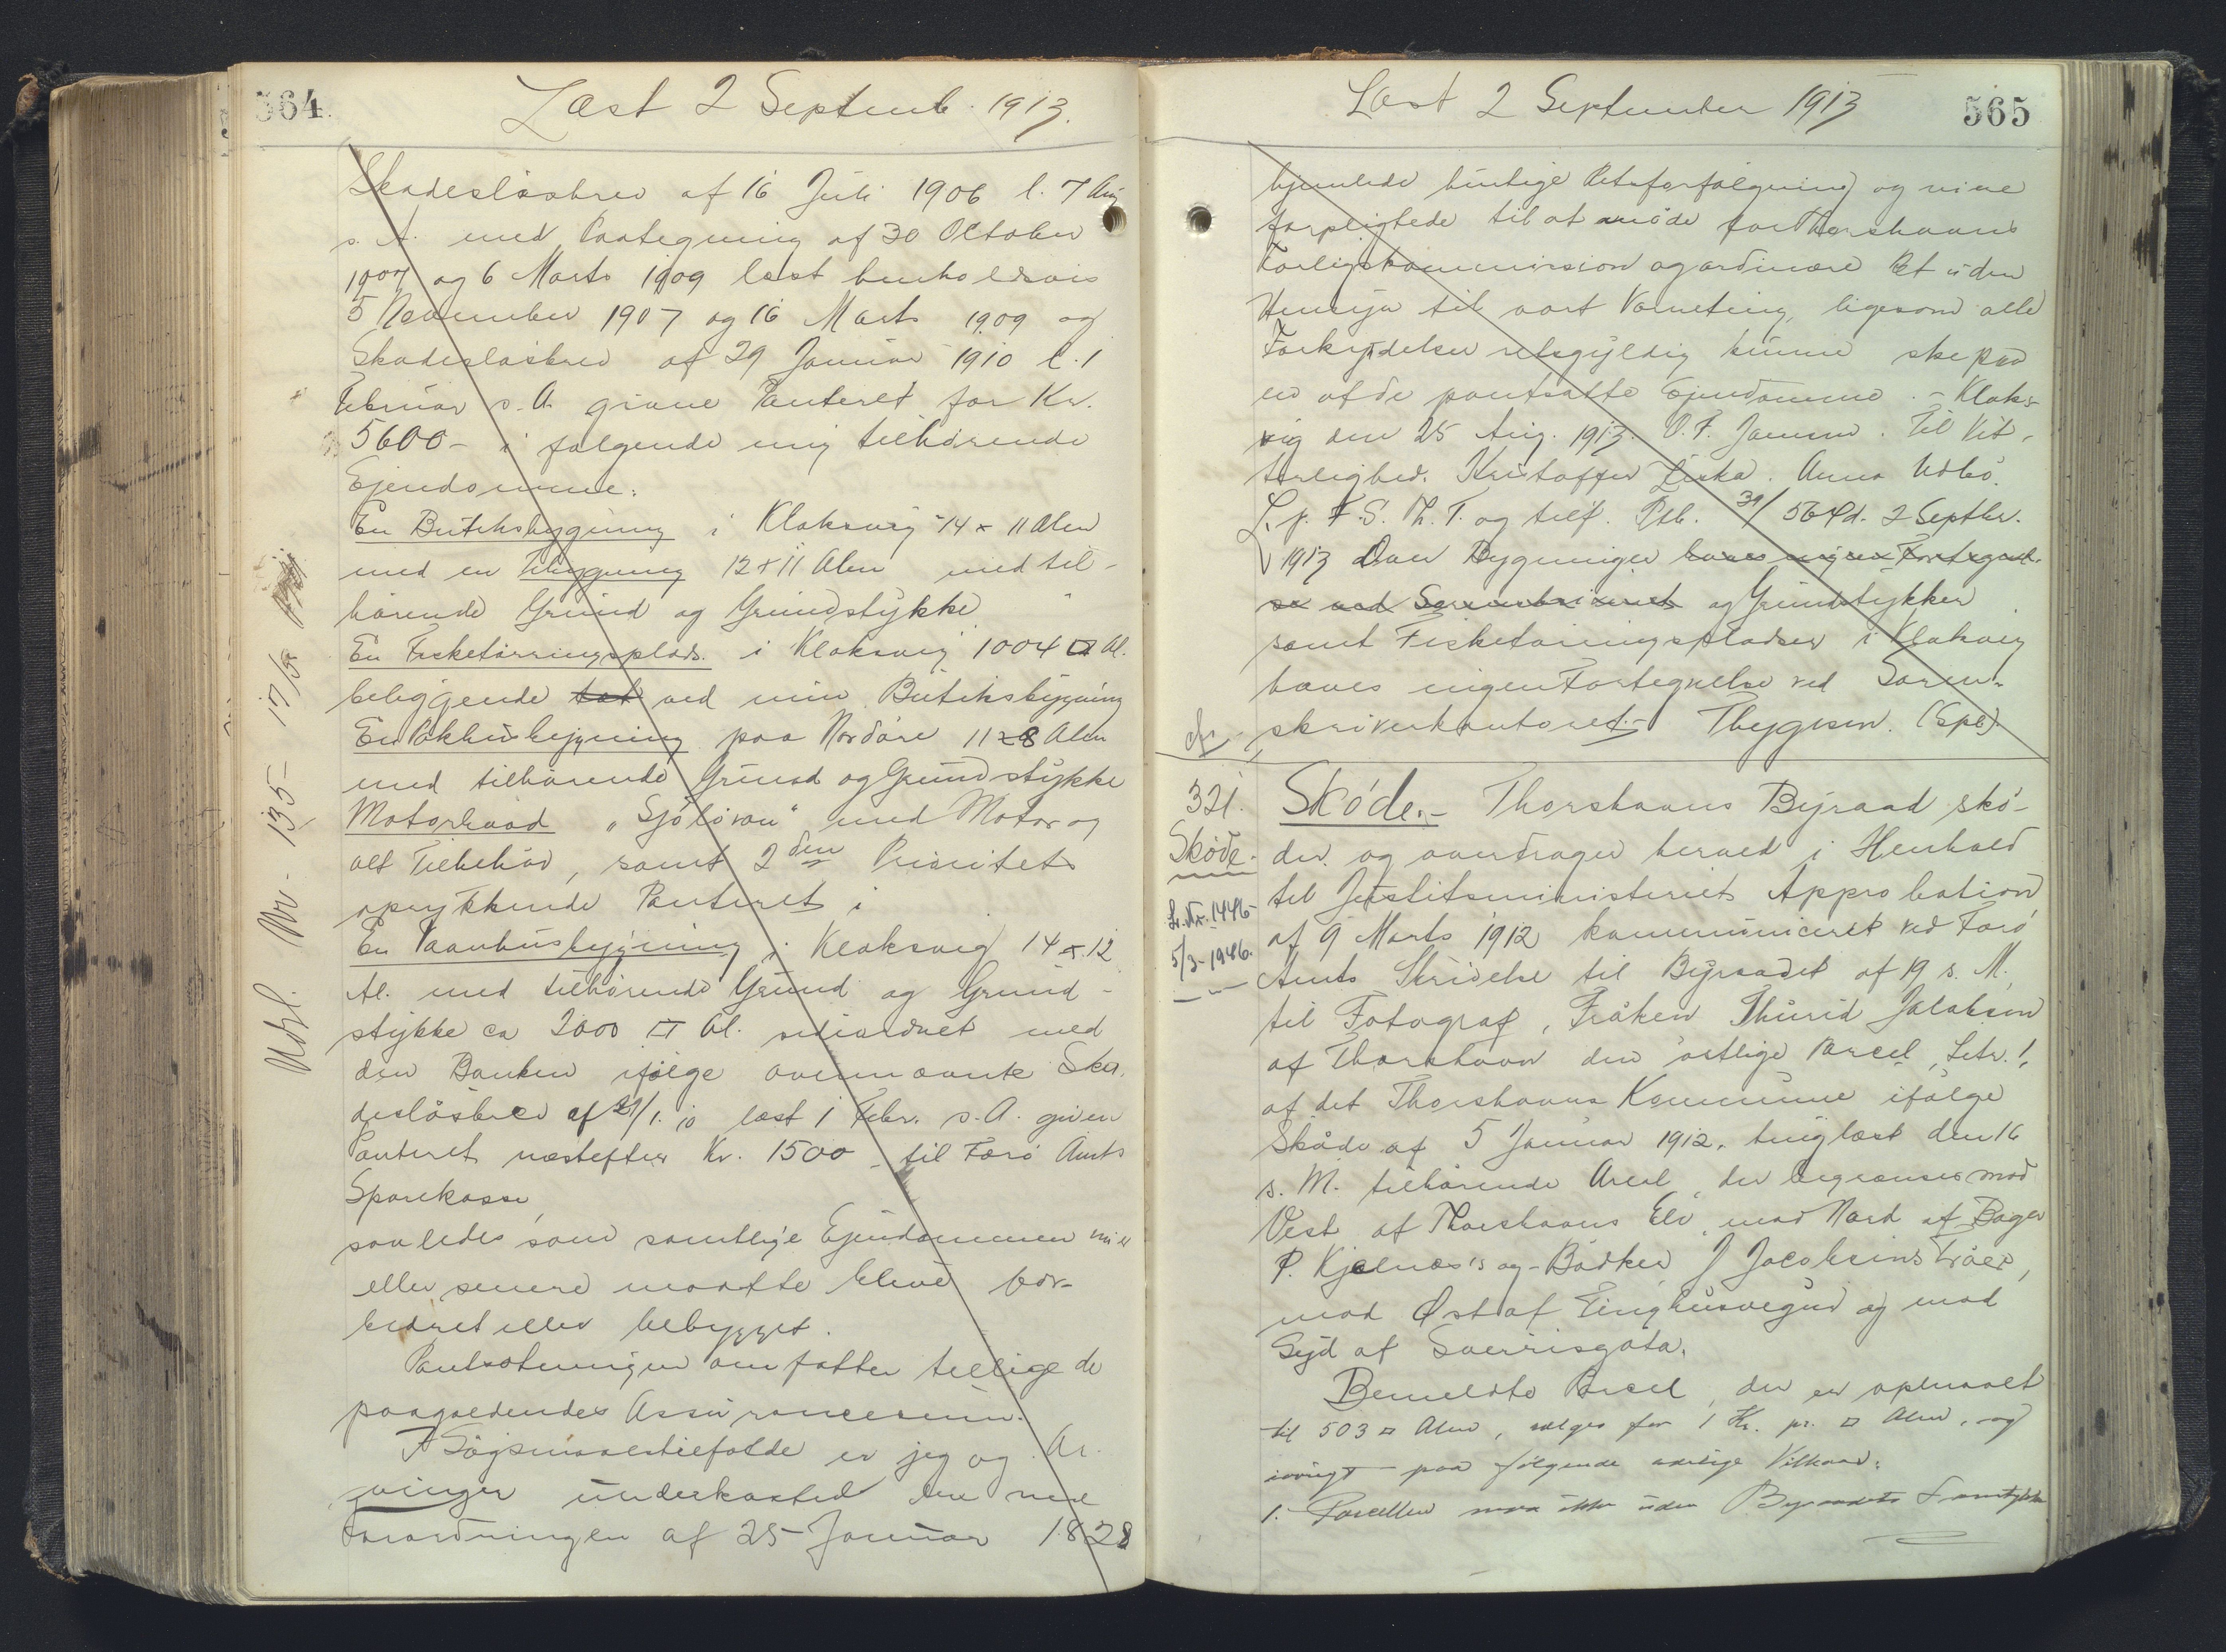 564.
Læst 2 Septemb. 1913.
Skadesløsbrev af 16 Juli 1906 l. 7 Aug
s. A. med Paategning af 30 October
1907 og 6 Marts 1909 læst henholdsvis
5 November 1907 og 16 Marts 1909 og
Skadesløsbrev af 29 Januar 1910 l. 1
Februar s. A. givne Panteret for Kr.
5600- i følgende mig tilhørende
Ejendomme:
En Butiksbygning i Klaksvig 14 x 11 Alen
med en Tilbygning 12 x 11 Alen med til-
hørende Grund og Grundstykke
En Fisketørringsplads. i Klaksvig 1004 □ Al.
beliggende tæt ved min Butiksbygning
En Pakhusbygning paa Nordøre 11 x 8 Alen
med tilhørende Grund og Grundstykke
Motorbaad „Sjóløvan" med Motor og
alt Tilbehør, samt 2den Prioritets
oprykkende Panteret i
En Vaanhusbygning i Klaksvig 14 x 12
Al. med tilhørende Grund og Grund-
stykke ca 2000 □ Al. sideordnet med
den Banken ifølge ovennævnte Ska-
desløsbrev af 29/1. 10 læst 1 Febr. s. A. given
Panteret næstefter Kr. 1500 - til Færø Amts
Sparekasse,
saaledes som samtlige Ejendommen nu er
eller senere maatte blive for-
bedret eller bebygget.
Pantsætningen omfatter tillige de
paagældendes Assurancesum.
I Søgsmaalstilfælde er jeg og Ar-
vinger underkasted den ved
Forordningen af 25 Januar 1828
Udsl. Nr. 135 - 17/5
Læst 2 September 1913
565
hjemlede hurtige Retsforfølgning og vi ere
forpligtede til at møde for Thorshavns
Forligskommission og ordinære Ret uden
Hensyn til vort Værneting, ligesom alle
Forkyndelser retsgyldig kunne ske paa
en af de pantsatte Ejendomme. - Klaks-
vig den 25 Aug. 1913. O. F. Joensen. Til Vit-
terlighed. Kristoffer Liska. Anna Udbø.
L. p. F. S. Th. T. og tilf. Ptb. 564 d. 2 Septbr.
1913 Over Bygninger haves ingen Fortegnel-
se ved Sorenskriveriet og Grundstykker
samt Fisketørringspladser i Klaksvig
haves ingen Fortegnelse ved Soren-
skriverkontoret.- Thygesen. (Spl)
321.
Skøde.
L. Nr. 1446-
5/3-1946.
Skøde.- Thorshavns Byraad skø-
der og overdrager herved i Henhold
til Justitsministeriets Approbation
af 9 Marts 1912 kommuniceret ved Færø
Amts Skrivelse til Byraadet af 19 s. M.
til Fotograf, Frøken Thurid Jacobsen
af Thorshavn den østlige Parcel, Litr. 1.
af det Thorshavns Kommune ifølge
Skøde af 5 Januar 1912. tinglæst den 16
s. M. tilhørende Areal, der begrænses mod
Vest af Thorshavns Elv, mod Nord af Bager
P. Kjølnæs's og Bødker J Jacobsens Trøer,
mod Øst af Tinghusvegur og mod
Syd af Sverrisgøta.
Bemeldte Parcel, der er opmaalt
til 503 □ Alen, sælges for 1 Kr. pr. □ Alen, og
iøvrigt paa følgende Vilkaar:
1. Parcellen maa ikke uden Byraadets Samtykke